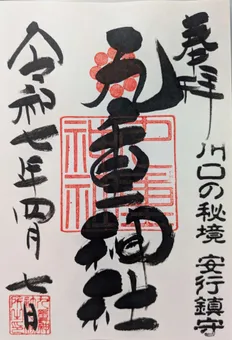 奉拝
川口の秘境 安行鎮守
九重神社
九重神社
令和七年四月 七日